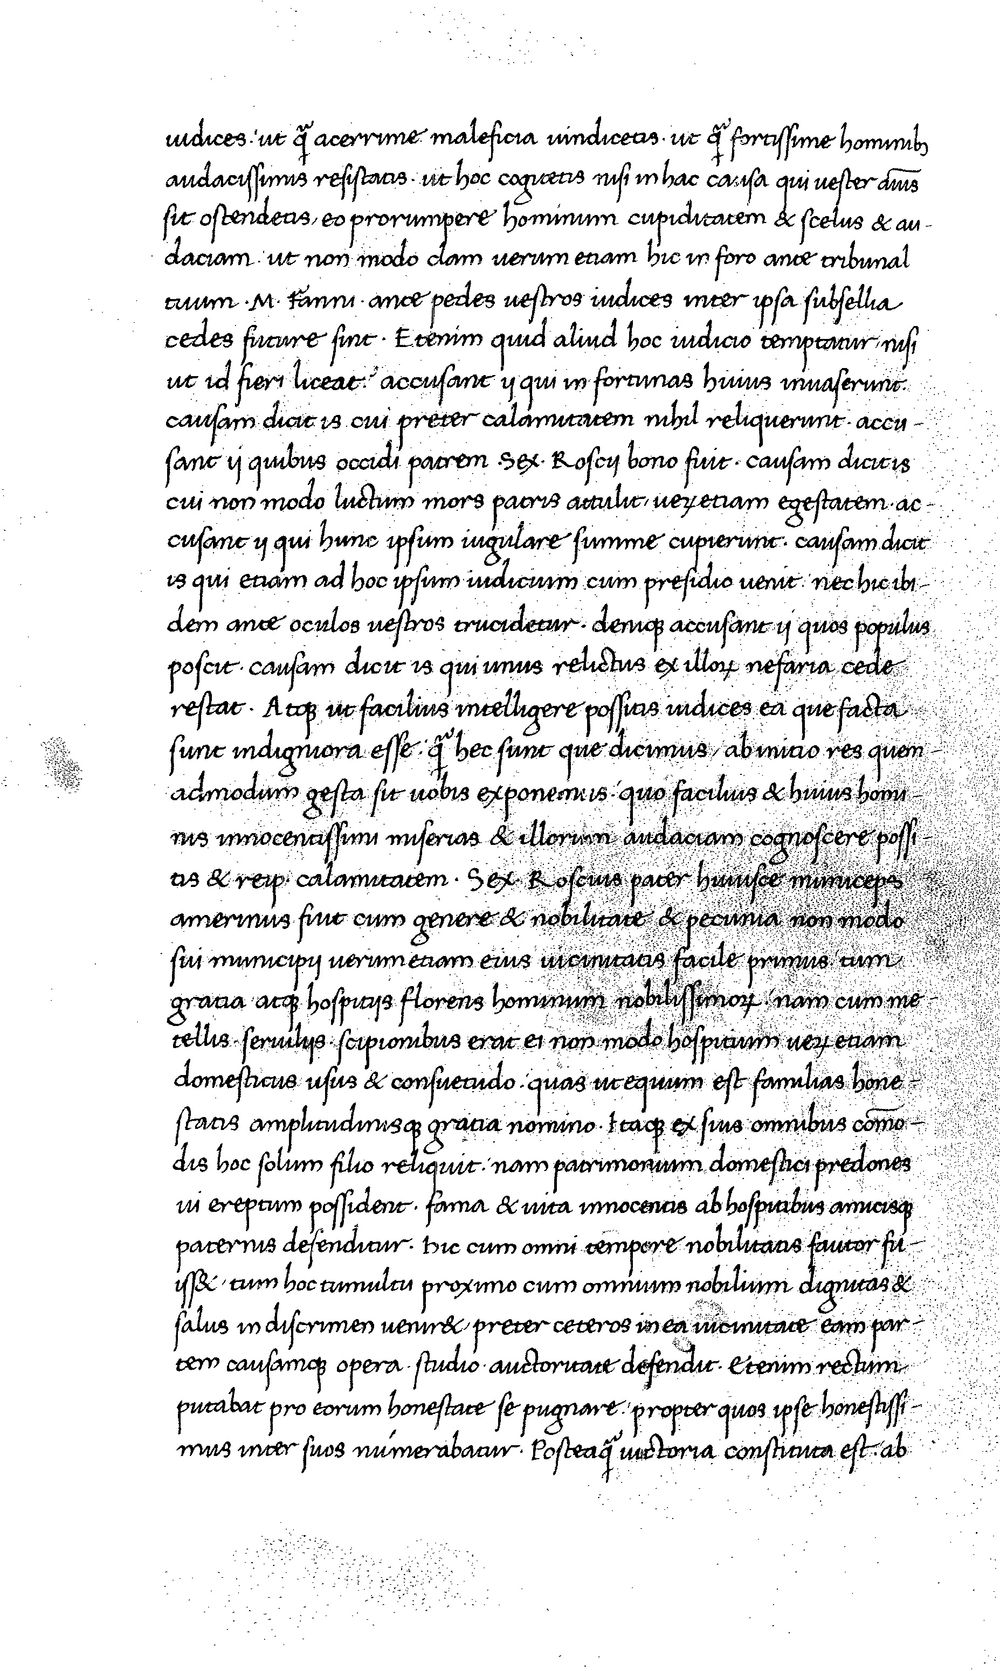 iudices· ut qͣ acerrime maleficia uindicetis· ut qͣ fortissime hominibꝫ
audacissimis resistatis· ut hoc cogitetis nisi in hac causa qui uester aīus
sit ostendetis, eo prorumpere hominum cupiditatem & scelus & au-
daciam· ut non modo clam uerum etiam hic in foro ante tribunal
tuum ·M· Fanni· ante pedes uestros iudices inter ipsa subsellia
cedes future sint· Etenim quid aliud hoc iudicio temptatur, nisi
ut id fieri liceat? accusant ij qui in fortunas huius inuaserunt·
causam dicit is cui preter calamitatem nihil reliquerunt· accu-
sant ij quibus occidi patrem ·Sex· Roscij bono fuit· causam dicit is
cui non modo luctum mors patris attulit, ueꝝ etiam egestatem· ac-
cusant ij qui hunc ipsum iugulare summe cupierunt· causam dicit
is qui etiam ad hoc ipsum iudicium cum presidio uenit· nec hic ibi-
dem ante oculos uestros trucidetur· deniqꝫ accusant ij quos populus
poscit· causam dicit is qui unus relictus ex illoꝝ nefaria cede
restat· Atqꝫ ut facilius intelligere possitis iudices ea que facta
sunt indigniora esse· qͣ hec sunt que dicimus, ab initio res quem-
admodum gesta sit uobis exponemus· quo facilius & huius homi-
nis innocentissimi miserias & illorum audaciam cognoscere possi-
tis & reip· calamitatem· Sex· Roscius pater huiusce municeps
amerinus fuit cum genere & nobilitate & pecunia non modo
sui municipij uerum etiam eius uicinitatis facile primus· tum
gratia atqꝫ hospitijs florens hominum nobilissimoꝝ· nam cum me-
tellis· seruilijs· scipionibus erat ei non modo hospitium ueꝝ etiam
domesticus usus & consuetudo· quas ut equum est familias hone-
statis amplitudinisqꝫ gratia nomino· Itaqꝫ ex suis omnibus com̄o-
dis hoc solum filio reliquit· nam patrimonium domestici predones
ui ereptum possident· fama & uita innocentis ab hospitibus amicisqꝫ
paternis defenditur· hic cum omni tempore nobilitatis fautor fu-
iss&, tum hoc tumultu proximo cum omnium nobilium dignitas &
salus in discrimen uenir&, preter ceteros in ea uicinitate eam par-
tem causamqꝫ opera· studio· auctoritate defendit· Etenim rectum
putabat pro eorum honestate se pugnare· propter quos ipse honestissi-
mus inter suos numerabatur· Posteaqͣ uictoria constituta est· ab